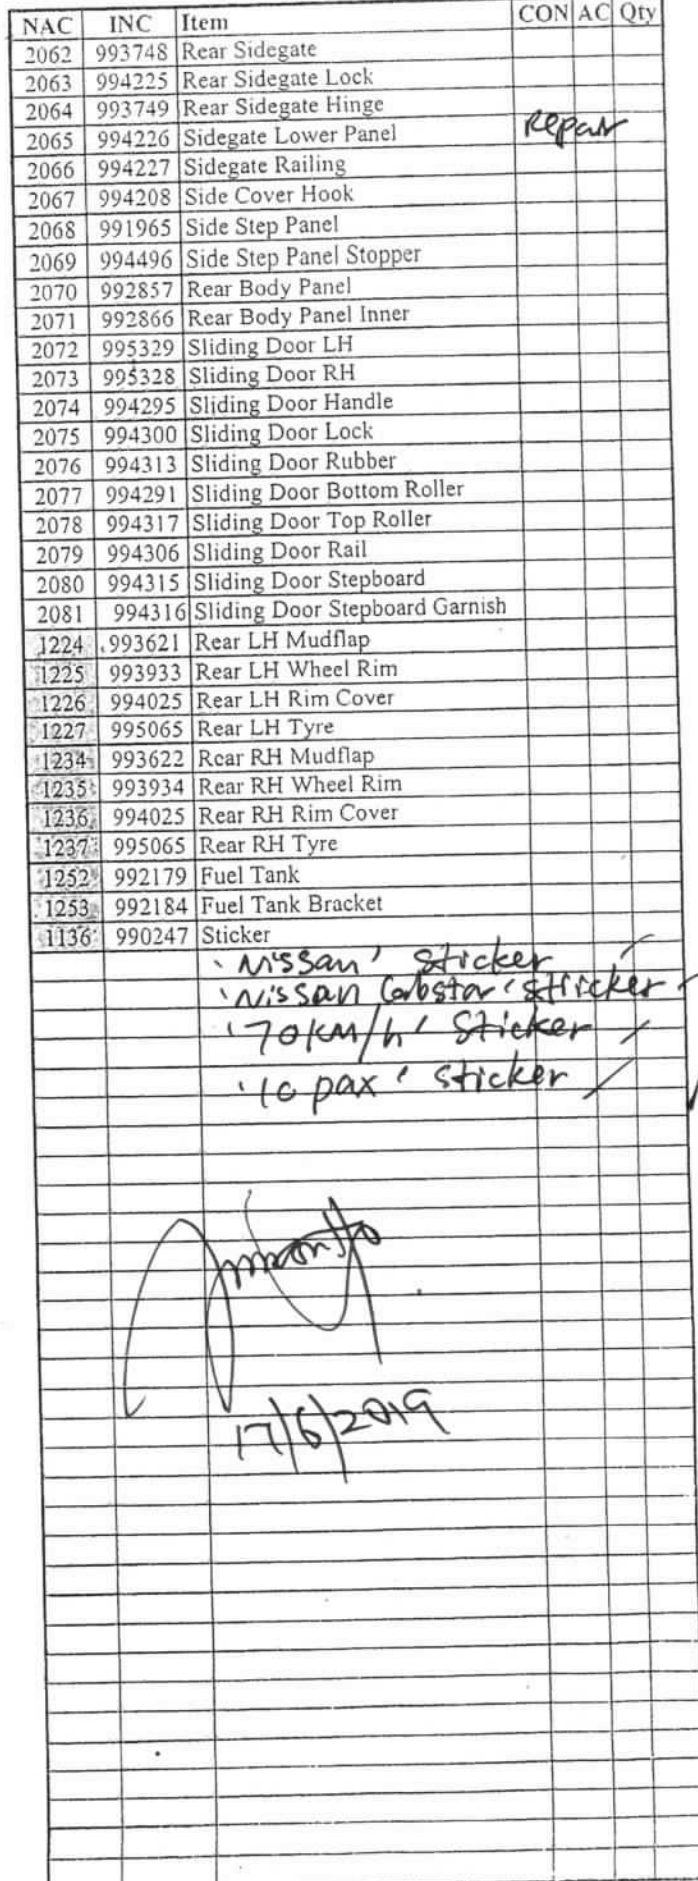 NAC INC Item CON AC Qty
2062 993748 Rear Sidegate
2063 994225 Rear Sidegate Lock
2064 993749 Rear Sidegate Hinge
2065 994226 Sidegate Lower Panel Repair
2066 994227 Sidegate Railing
2067 994208 Side Cover Hook
2068 991965 Side Step Panel
2069 994496 Side Step Panel Stopper
2070 992857 Rear Body Panel
2071 992866 Rear Body Panel Inner
2072 995329 Sliding Door LH
2073 995328 Sliding Door RH
2074 994295 Sliding Door Handle
2075 994300 Sliding Door Lock
2076 994313 Sliding Door Rubber
2077 994291 Sliding Door Bottom Roller
2078 994317 Sliding Door Top Roller
2079 994306 Sliding Door Rail
2080 994315 Sliding Door Stepboard
2081 994316 Sliding Door Stepboard Garnish
1224 993621 Rear LH Mudflap
1225 993933 Rear LH Wheel Rim
1226 994025 Rear LH Rim Cover
1227 995065 Rear LH Tyre
1234 993622 Rear RH Mudflap
1235 993934 Rear RH Wheel Rim
1236 994025 Rear RH Rim Cover
1237 995065 Rear RH Tyre
1252 992179 Fuel Tank
1253 992184 Fuel Tank Bracket
1136 990247 Sticker
'Nissan' Sticker
'Nissan Cabstar' Sticker
'70km/h' Sticker
'10 pax' sticker
17/6/2019